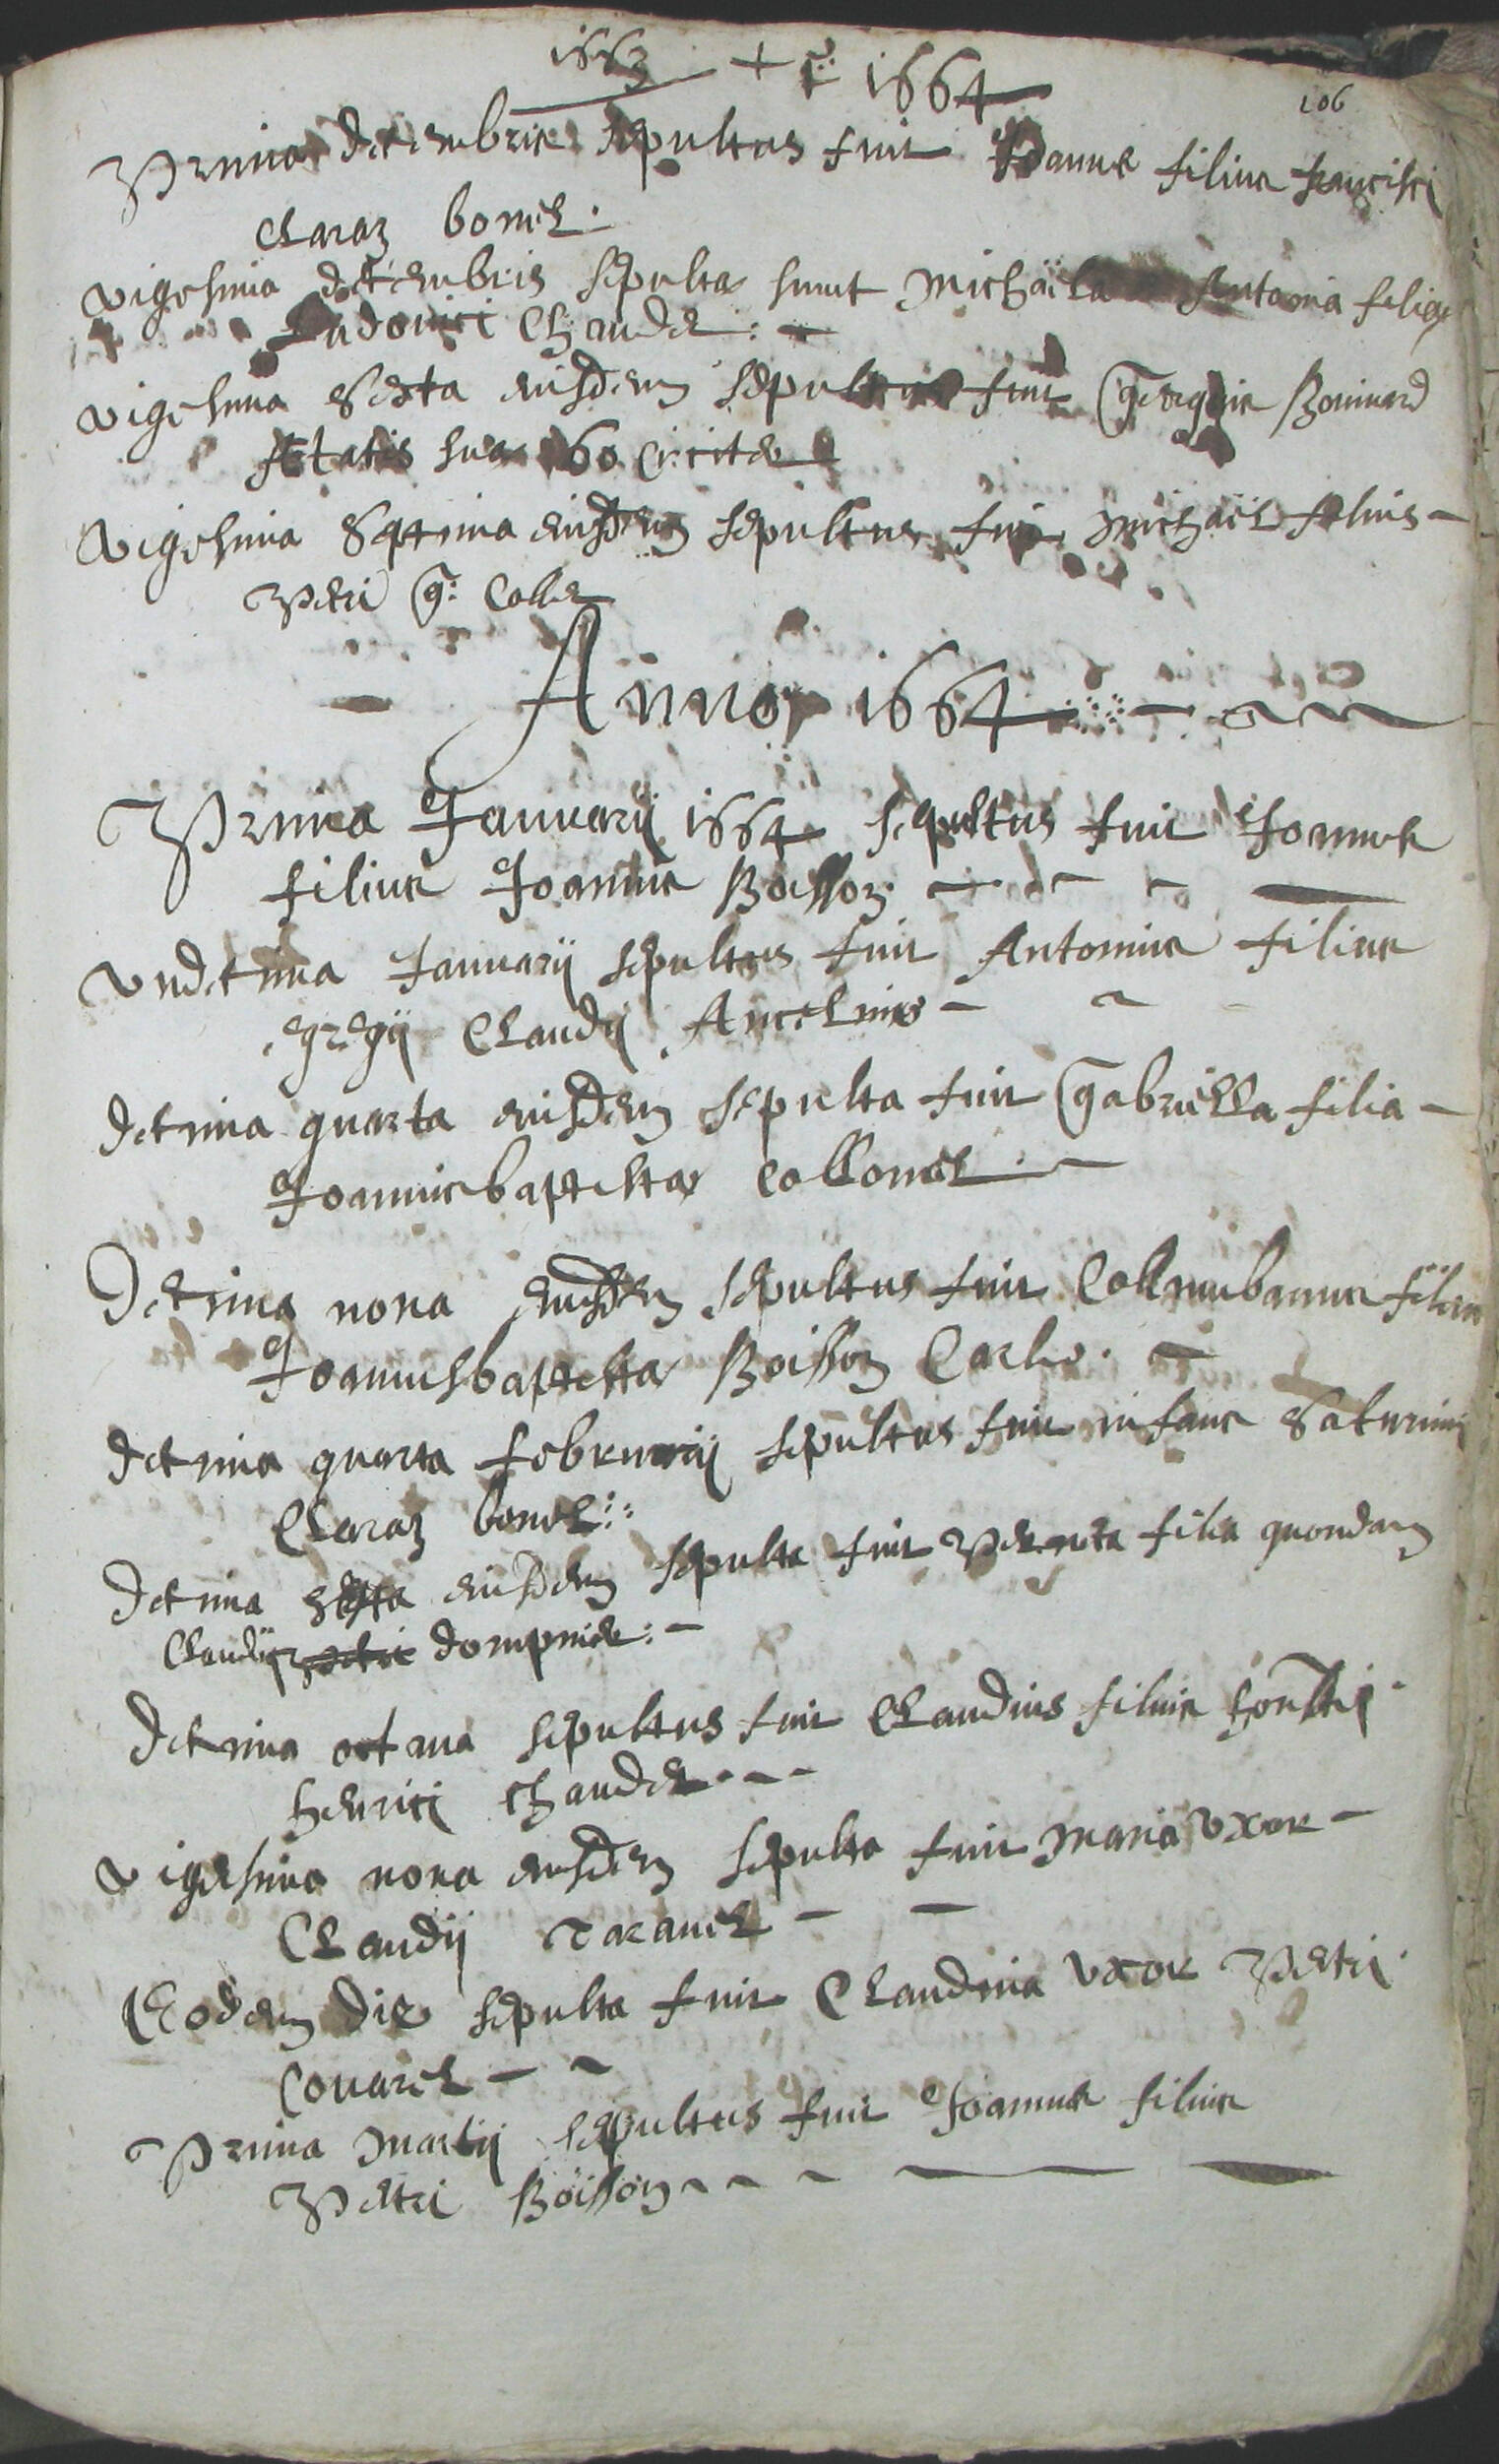 1663 + 1664
106
Prima decembris sepultus fuit Joannes filius francisci
Claraz bonel.
vigesima decembris sepultae sunt Michaëla Antonia filiae
Ludovici Chaudet
vigesima sexta eiusdem sepultus fuit Georgius Boinnard
Aetatis suae 60 circiter
Vigesima Septima eiusdem sepultus fuit Michaël filius
Petri g: Collet
Anno 1664
Prima Januarij 1664 sepultus fuit Joannes
filius Joannis Boisson
undecima Januarij sepultus fuit Antonius filius
egregij Claudij Ancelmo
decima quarta eiusdem sepulta fuit Gabriella filia
Joannisbaptestae Collomel
Decima nona eiusdem sepultus fuit Collumbanus filius
Joannisbaptestae Boisson Carlo.
decima quarta februarij sepultus fuit infans Saturnini
Claraz bonel
decima sexta eiusdem sepulta fuit Perneta filia quondam
Claudij dompnier
decima octava sepultus fuit Claudius filius honesti
henrici Chaudet
vigesima nona eiusdem sepulta fuit Maria uxor
Claudij Taravel
Eodem die sepulta fuit Claudina uxor Petri
Covarel
Prima Martij sepultus fuit Joannes filius
Petri Boisson